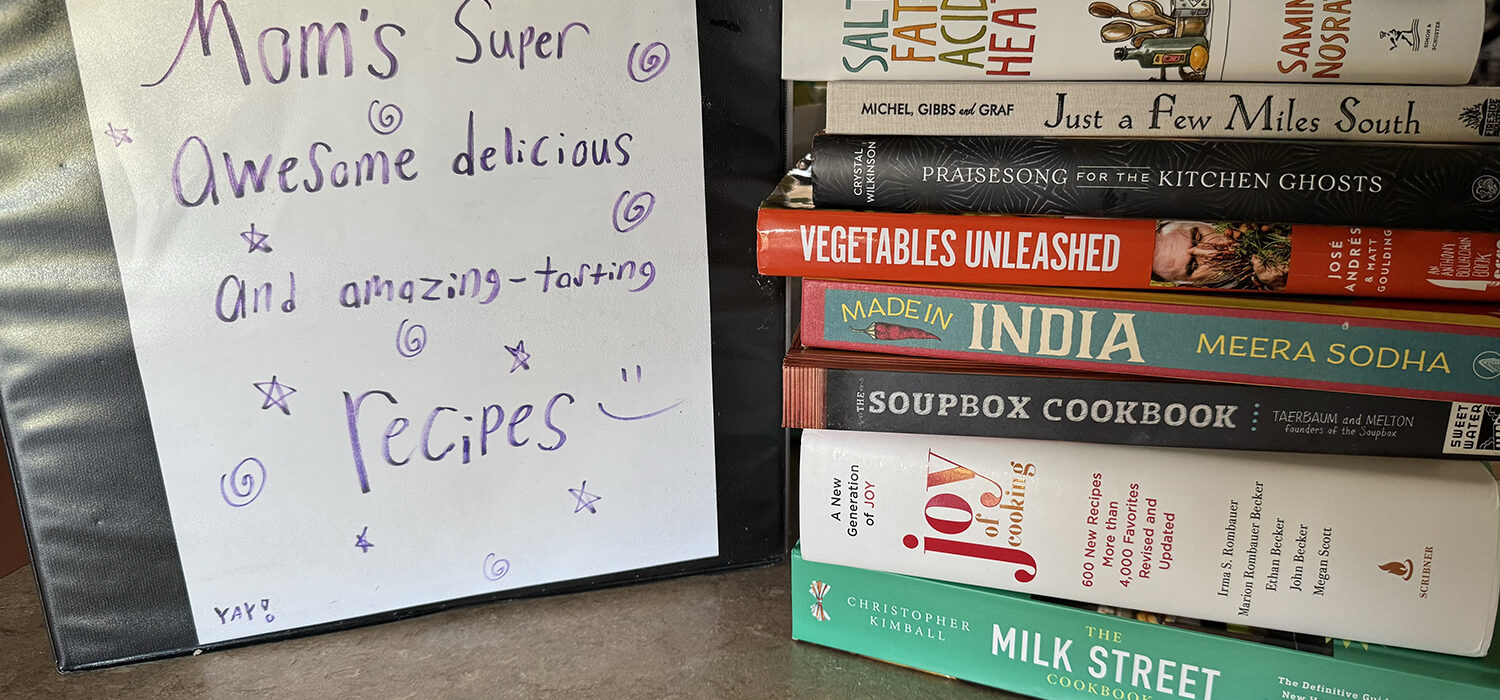 Mom's Super
Awesome delicious
and amazing-tasting
recipes
YAY!
SALT
FAT
ACID
HEAT
SAMIN
NOSRAT
SIMON &
SCHUSTER
MICHEL, GIBBS and GRAF
Just a Few Miles South
CRYSTAL
WILKINSON
PRAISESONG FOR THE KITCHEN GHOSTS
VEGETABLES UNLEASHED
JOSÉ
ANDRÉS
& MATT
GOULDING
AN
ANTHONY
BOURDAIN
BOOK
MADE IN
INDIA
MEERA SODHA
THE
SOUPBOX COOKBOOK
TAERBAUM and MELTON
founders of the Soupbox
SWEET
WATER
A New
Generation
of JOY
joy
of
cooking
600 New Recipes
More than
4,000 Favorites
Revised and
Updated
Irma S. Rombauer
Marion Rombauer Becker
Ethan Becker
John Becker
Megan Scott
SCRIBNER
CHRISTOPHER
KIMBALL
THE
MILK STREET
COOKBOOK
The Definitive Guide
New H